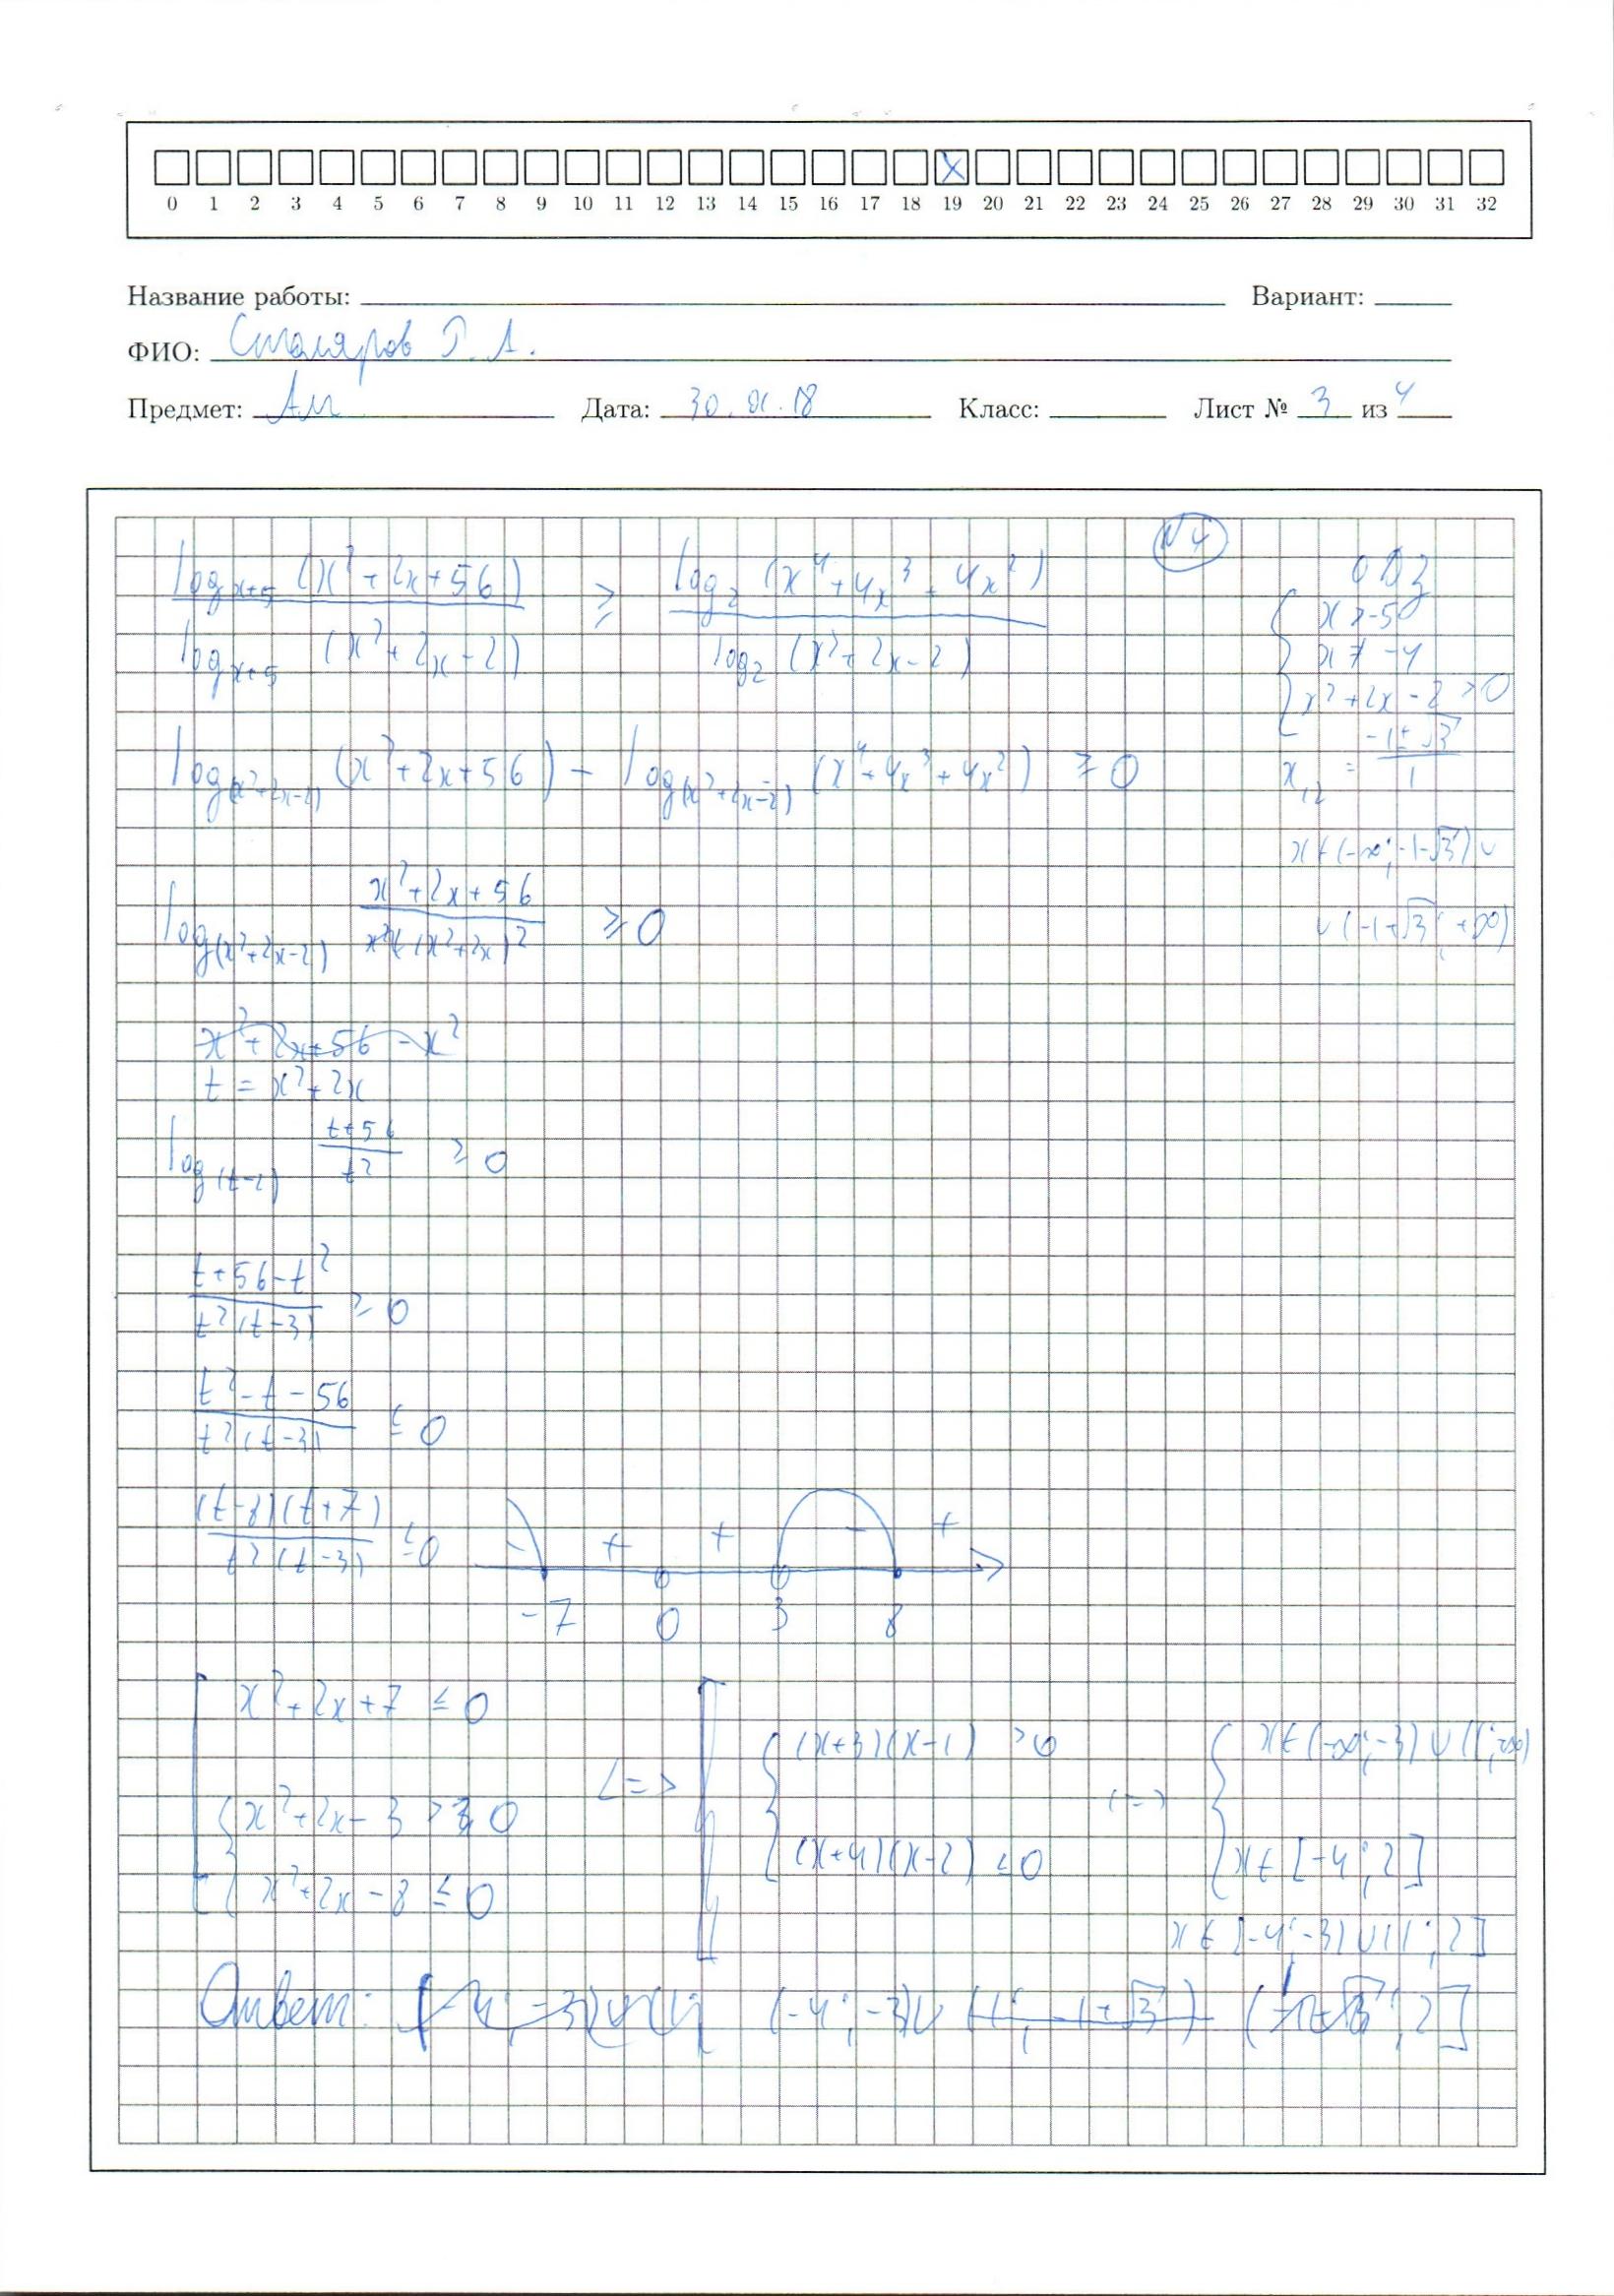 X
0 1 2 3 4 5 6 7 8 9 10 11 12 13 14 15 16 17 18 19 20 21 22 23 24 25 26 27 28 29 30 31 32
Название работы: Вариант:
ФИО: Столяров Г. А.
Предмет: Дата: 30.01.18 Класс: Лист № 3 из 4
№4
log_{x+5} (x²+2x+56) / log_{x+5} (x²+2x-2) ≥ log_2 (x⁴+4x³+4x²) / log_2 (x²+2x-2)
ОДЗ
x > -5
x ≠ -4
x²+2x-2 > 0
x_{12} = (-1±√3)/1
x ∈ (-∞; -1-√3) ∪
∪ (-1+√3; +∞)
log_{(x²+2x-2)} (x²+2x+56) - log_{(x²+2x-2)} (x⁴+4x³+4x²) ≥ 0
log_{(x²+2x-2)} (x²+2x+56)/(x²+2x)² ≥ 0
x²+2x+56-x²
t = x²+2x
log_{(t-2)} (t+56)/t² ≥ 0
(t+56-t²)/(t²(t-3)) ≥ 0
(t²-t-56)/(t²(t-3)) ≤ 0
(t-8)(t+7)/(t²(t-3)) ≤ 0
- + + - +
-7 0 3 8
x²+2x+7 ≤ 0
x²+2x-3 > 0
x²+2x-8 ≤ 0
<=>
(x+3)(x-1) > 0
(x+4)(x-2) ≤ 0
<=>
x ∈ (-∞; -3) ∪ (1; +∞)
x ∈ [-4; 2]
x ∈ [-4; -3) ∪ (1; 2]
Ответ: (-4; -3) ∪ (1; (-4; -3) ∪ (1; -1+√3) (-1+√3; 2]